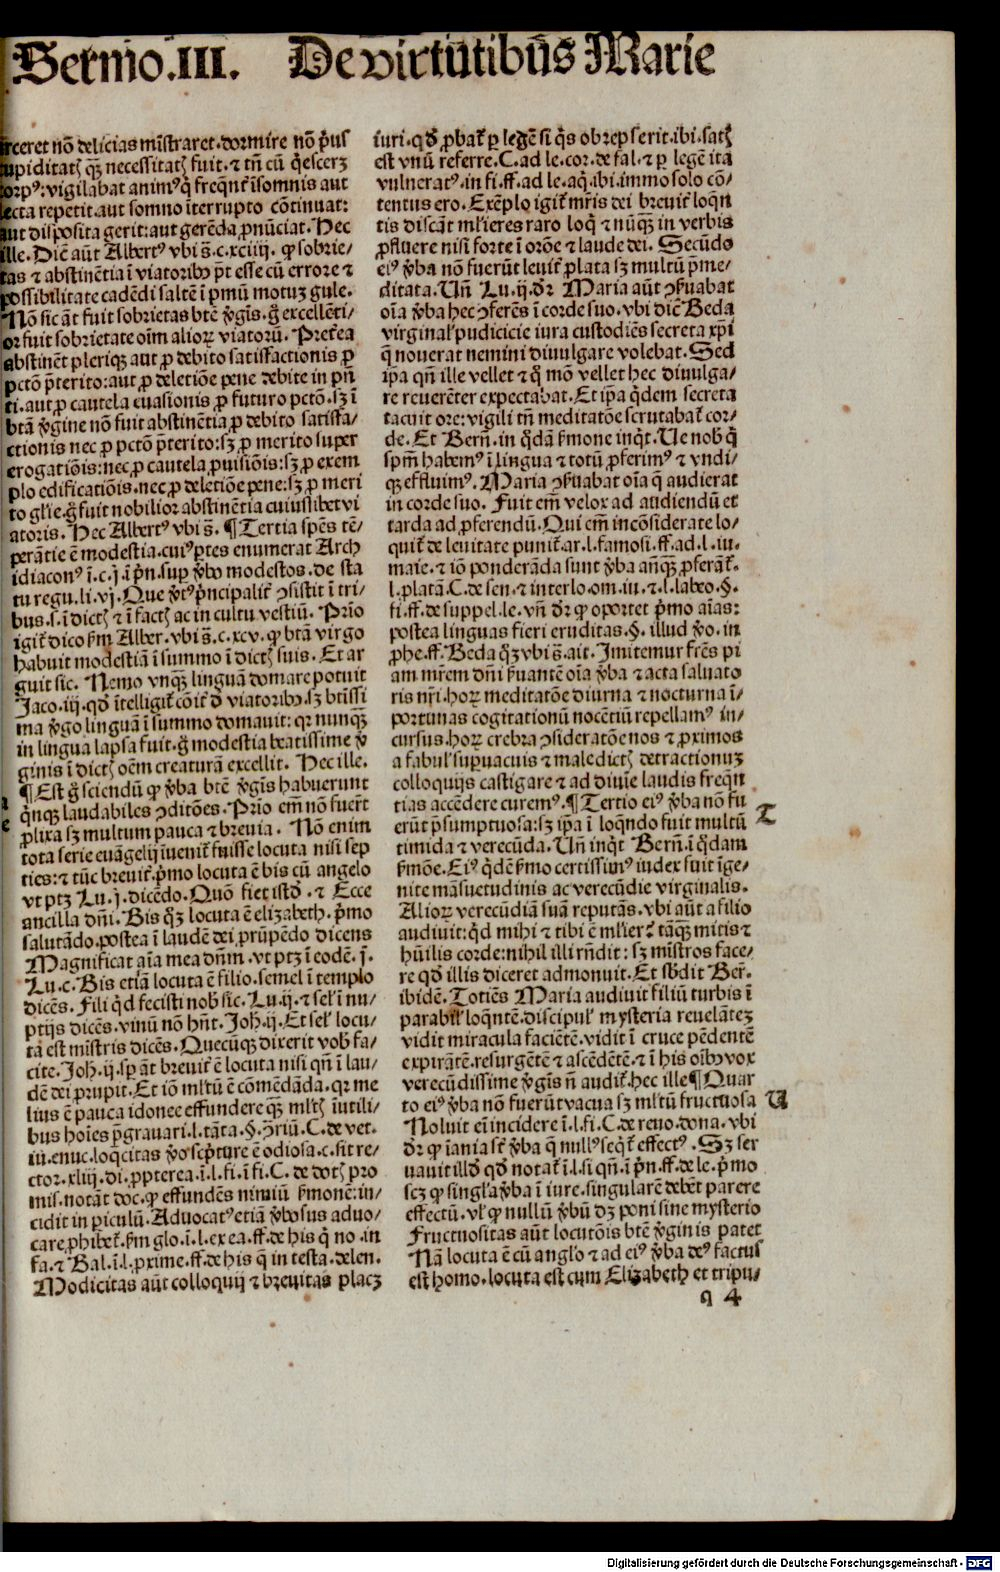 Sermo.III. De virtutibus Marie
arceret nō delicias mīstraret. dormire nō p̄us
cupiditatis q̄ꝫ necessitatis fuit. ⁊ tn̄ cū q̇escerꝫ
corpꝰ: vigilabat animꝰ q̇ freq̄nt̄ ī somnis aut
lecta repetit. aut somno īterrupto cōtinuat:
aut disposita gerit: aut gerēda ꝓnūciat. Hec
ille. Dic̄ aūt Albertꝰ vbi s̄. c. xciiij. ꝙ sobrie-
tas ⁊ abstinētia ī viatoribꝰ pt̄ esse cū errore ⁊
possibilitate cadēdi saltē ī pͥmū motuꝫ gule.
Nō sic āt fuit sobrietas btē ꝟgīs. g̊ excellēti-
or fuit sobrietate oīm alioꝝ viatorū. Pretea
abstinēt pleriqꝫ aut ꝓ debito satisfactionis ꝓ
pctō p̄terito: aut ꝓ deletiōe pene debite in pn̄
ti. aut ꝓ cautela euasionis ꝓ futuro pctō. sꝫ ī
btā ꝟgine nō fuit abstinētia ꝓ debito satisfa-
ctionis nec ꝓ pctō p̄terito: sꝫ ꝓ merito super
erogatiōis: nec ꝓ cautela ꝓuisiōis: sꝫ ꝓ exem
plo edificatiōis. nec ꝓ deletiōe pene: sꝫ ꝓ meri
to glīe. g̊ fuit nobilior abstinētia cuiussibet vi
atoris. Hec Albertꝰ vbi s̄. ¶ Tertia spēs tē-
perātie ē modestia. cuiꝰ ꝑtes enumerat Arch
idiaconꝰ ī. c. j. ī pn̄. suꝑ ꝟbo modestos. de sta
tu regu. li. vj. Que ꝟtꝰ pͥncipalit̄ ꝯsistit ī tri-
bus. s. ī dictis ⁊ ī factis ac in cultu vestiū. Prīo
igit̄ dico ẜm Alber. vbi s̄. c. xcv. ꝙ btā virgo
habuit modestiā ī summo ī dictis suis. Et ar
guit sic. Nemo vnqꝫ linguā domare potuit
Jaco. iij. qđ ītelligit̄ cōit̄ đ viatoribꝰ. sꝫ btīssi
ma ꝟgo linguā ī summo domauit: qꝛ nunqꝫ
in lingua lapsa fuit. g̊ modestia beatissime ꝟ
ginis ī dictis oēm creaturā excellit. Hec ille.
¶ Est g̊ sciendū ꝙ ꝟba btē ꝟgīs habuerunt
q̇nqꝫ laudabiles ꝯditōes. Prīo em̄ nō fuer̄t
ꝓlixa sꝫ multum pauca ⁊ breuia. Nō enim
tota serie euāgelij īuenit̄ fuisse locuta nisi sep
ties: ⁊ tūc breuit̄. pͥmo locuta ē bis cū angelo
vt ptꝫ Lu. j. dicēdo. Quō fiet istđ. ⁊ Ecce
ancilla dn̄i. Bis q̊ꝫ locuta ē elizabeth. pͥmo
salutādo. postea ī laudē dei prūpēdo dicens
Magnificat aīa mea dn̄m. vt ptꝫ ī eodē. j.
Lu. c. Bis etiā locuta ē filio. semel ī templo
dicēs. Fili qđ fecisti nob̄ sic. Lu. ij. ⁊ sel̄ ī nu-
ptijs dicēs. vinū nō hn̄t. Joh. ij. Et sel̄ locu-
ta est mīstris dicēs. Quecūqꝫ dixerit vob̄ fa-
cite. Joh. ij. sꝑ āt breuit̄ ē locuta nisi qn̄ ī lau-
dē dei prupit. Et iō mltū ē cōmēdāda. qꝛ me
lius ē pauca idonee effundere qꝫ mltis īutili-
bus hoīes p̄grauari. l. tāta. §. ꝯriū. C. de vet.
iu. enuc. loq̄citas ꝟo scpͥture ē odiosa. c. sit re-
ctor. xliij. di. ꝓpterea. ī. l. fi. ī fi. C. de dotis pro
mis. notāt doc. ꝙ effundēs nimiū ẜmonē: in-
cidit in periculū. Aduocatꝰ etiā ꝟbosus aduo-
care ꝓhibet̄. ẜm glo. ī. l. ex ea. ff. de his q̇ no. in
fa. ⁊ Bal. ī. l. pxime. ff. de his q̇ in testa. delen.
Modicitas aūt colloquij ⁊ breuitas placꝫ
iuri. qđ ꝓbat̄ ꝑ legē si q̇s obrepserit. ibi. satis
est vnū referre. C. ad le. cor. de fal. ⁊ ꝑ legē ita
vulneratꝰ. in fi. ff. ad le. aq̇. ibi. immo solo cō-
tentus ero. Exēplo igit̄ mr̄is dei breuit̄ loq̄n
tis discāt ml̄ieres raro loq̇ ⁊ nūqꝫ in verbis
ꝓfluere nisi forte ī orōe ⁊ laude dei. Secūdo
eiꝰ ꝟba nō fuerūt leuit̄ plata sꝫ multū p̄me-
ditata. Vn̄ Lu. ij. dr̄ Maria aūt ꝯẜuabat
oīa ꝟba hec ꝯferēs ī corde suo. vbi dic̄ Beda
virginal̄ pudicicie iura custodiēs secreta xp̄i
q̄ nouerat nemini diuulgare volebat. Sed
ip̄a qn̄ ille vellet ⁊ q̊ mō vellet hec diuulga-
re reuerēter expectabat. Et ip̄a q̇dem secreta
tacuit ore: vigili tn̄ meditatōe scrutabat̄ cor-
de. Et Bern̄. in q̊dā ẜmone inq̇t. Ve nob̄ q̇
spm̄ habemꝰ ī lingua ⁊ totū ꝓferimꝰ ⁊ vndi-
qꝫ effluimꝰ. Maria ꝯẜuabat oīa q̄ audierat
in corde suo. Fuit em̄ velox ad audiendū et
tarda ad ꝓferendū. Qui em̄ incōsiderate lo-
quit̄ de leuitate punit̄. ar. l. famosi. ff. ad. l. iu.
maie. ⁊ iō ponderāda sunt ꝟba an̄qꝫ ꝓferāt̄.
l. platā. C. de sen. ⁊ interlo. om. iu. ⁊. l. labeo. §.
fi. ff. de suppel. le. vn̄ dr̄ ꝙ oportet pͥmo aīas:
postea linguas fieri eruditas. §. illud ꝟo. in
ꝓhe. ff. Beda q̊ꝫ vbi s̄. ait. Imitemur frēs pi
am mr̄em dn̄i ẜuantē oīa ꝟba ⁊ acta saluato
ris nr̄i. hoꝝ meditatōe diurna ⁊ nocturna ī-
portunas cogitationū nocētiū repellamꝰ in-
cursus. hoꝝ crebra ꝯsideratōe nos ⁊ ꝓximos
a fabul̄ supuacuis ⁊ maledictis detractionuꝫ
colloquijs castigare ⁊ ad diuīe laudis freq̄n
tias accēdere curemꝰ. ¶ Tertio eiꝰ ꝟba nō fu
erūt p̄sumptuosa: sꝫ ip̄a ī loq̄ndo fuit multū
timida ⁊ verecūda. Vn̄ inq̇t Bern̄. ī q̊dam
ẜmōe. Eiꝰ q̇dē ẜmo certissimꝰ iudex fuit īge-
nite māsuetudinis ac verecūdie virginalis.
Alioꝝ verecūdiā suā reputās. vbi aūt a filio
audiuit: qđ mihi ⁊ tibi ē ml̄ier? tāqꝫ mitis ⁊
hūilis corde: nihil illi rn̄dit: sꝫ mīstros face-
re qđ illis diceret admonuit. Et sb̄dit Ber.
ibidē. Totiēs Maria audiuit filiū turbis ī
parabil̄ loq̄ntē. discipul̄ mysteria reuelāteꝫ
vidit miracula faciētē. vidit ī cruce pēdentē
expirātē. resurgētē ⁊ ascēdētē. ⁊ ī his oībꝰ vox
verecūdissime ꝟgīs n̄ audit̄. hec ille ¶ Quar
to eiꝰ ꝟba nō fuerūt vacua sꝫ ml̄tū fructuosa
Noluit em̄ incidere ī. l. fi. C. de reuo. dona. vbi
dr̄ ꝙ īania st̄ ꝟba q̄ nullꝰ seq̇t̄ effectꝰ. Sꝫ ser
uauit illđ qđ notat̄ ī. l. si qn̄. ī pn̄. ff. de le. pͥmo
scꝫ ꝙ singl̄a ꝟba ī iure. singularē debēt parere
effectū. vl̄ ꝙ nullū ꝟbū dꝫ poni sine mysterio
Fructuositas aūt locutōis btē ꝟginis patet
Nā locuta ē cū angl̄o ⁊ ad eiꝰ ꝟba deꝰ factus
est homo. locuta est cum Elizabeth et tripu-
T
V
q 4
Digitalisierung gefördert durch die Deutsche Forschungsgemeinschaft - DFG